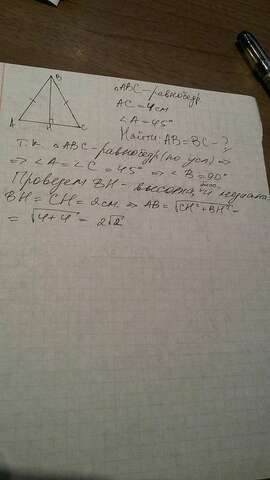 B
A
H
C
△ABC - равнобедр.
AC = 4 см
∠A = 45°
Найти: AB = BC - ?
Т.к. △ABC - равнобедр (по усл) ⇒
⇒ ∠A = ∠C = 45° ⇒ ∠B = 90°
Проведем BH - высота, медиана
BH = CH = 2 см ⇒ AB = √CH² + BH² =
= √4+4 = 2√2